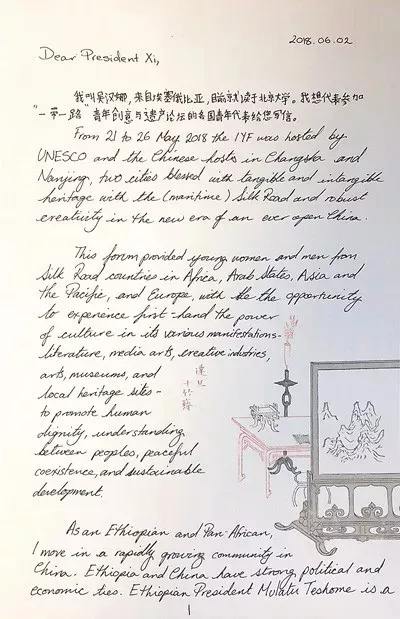 2018.06.02
Dear President Xi,
我叫吴汉娜，来自埃塞俄比亚，目前就读于北京大学。我想代表参加
"一带一路"青年创意与遗产论坛的各国青年代表给您写信。
From 21 to 26 May 2018 the IYF was hosted by
UNESCO and the Chinese hosts in Changsha and
Nanjing, two cities blessed with tangible and intangible
heritage with the (maritime) Silk Road and robust
creativity in the new era of an ever open China.
This forum provided young women and men from
Silk Road countries in Africa, Arab States, Asia and
the Pacific, and Europe, with the the opportunity
to experience first-hand the power
of culture in its various manifestations-
literature, media arts, creative industries,
arts, museums, and
local heritage sites-
to promote human
dignity, understanding
between peoples, peaceful
coexistence, and sustainable
development.
As an Ethiopian and Pan-African,
I move in a rapidly growing community in
China. Ethiopia and China have strong political and
economic ties. Ethiopian President Mulatu Teshome is a
1